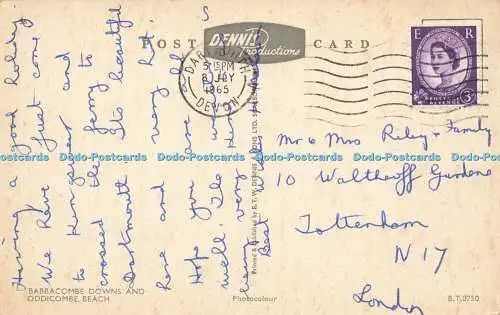 POST CARD
DENNIS
Productions
DARTMOUTH
5 15 PM
8 JLY
1965
DEVON
E R
POSTAGE
REVENUE
3D
Having a good holiday.
We have just come
to Kingswear and
crossed the ferry to
Dartmouth. Its beautiful
here and very hot.
Hope you are all
well. The
having very
Best
Mr & Mrs Riley & Family
10 Waltheoff Gardens
Tottenham
N 17
London
BABBACOMBE DOWNS AND
ODDICOMBE BEACH
Photocolour
B.T.0750
Dodo-Postcards Dodo-Postcards Dodo-Postcards Dodo-Postcards Dodo-Postcards